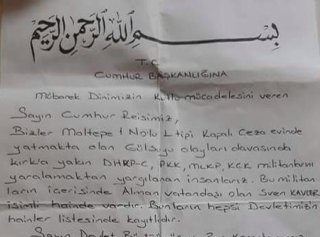 بسم الله الرحمن الرحيم
T.C
CUMHUR BAŞKANLIĞINA
Mübarek Dinimizin Kutlu mücadelesini veren
Sayın Cumhur Reisimiz,
Bizler Maltepe 1 Nolu L tipi Kapalı Ceza evinde
yatmakta olan Gülsuyu olayları davasında
kırk'a yakın DHKP-C, PKK, MLKP, KCK militanlarını
yaralamaktan yargılanan insanlarız. Bu militan
ların içerisinde Alman vatandaşı olan Sven KAVLER
isimli hainde vardır. Bunların hepsi Devletimizin
hainler listesinde kayıtlıdır.
Sayın Devlet